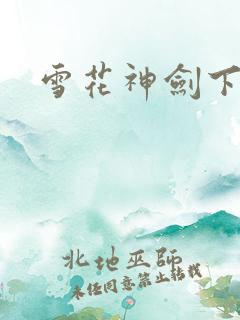 雪花神劍下
北地巫師
未经同意禁止转载